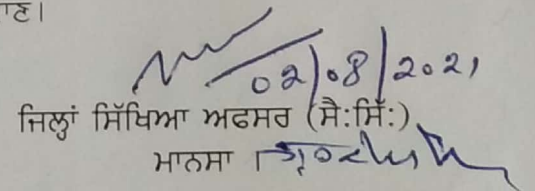 ਾਣ।
02/08/2021
ਜਿਲ੍ਹਾਂ ਸਿੱਖਿਆ ਅਫਸਰ (ਸੈ:ਸਿੱ:)
ਮਾਨਸਾ ।